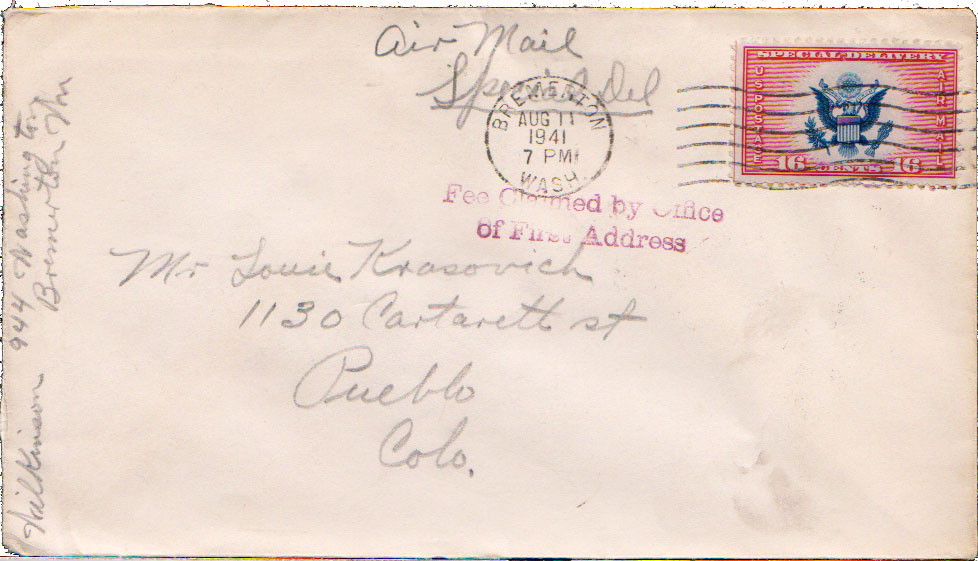 Air Mail
Special Del
BREMERTON
AUG 11
1941
7 PM
WASH.
SPECIAL DELIVERY
U S POSTAGE
AIR MAIL
16 CENTS 16
Fee Claimed by Office
of First Address
Mr Louie Krasovich
1130 Cartarett st
Pueblo
Colo.
Wilkinson 944 Washington
Bremerton Wn